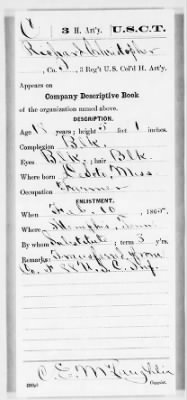 C 3 H. Art'y. U.S.C.T.
Richard
, Co. , 3 Reg't U.S. Col'd H. Art'y.
Appears on
Company Descriptive Book
of the organization named above.
DESCRIPTION.
Age 18 years; height 5 feet 1 inches.
Complexion Blk.
Eyes Blk.; hair Blk.
Where born Miss
Occupation Farmer
ENLISTMENT.
When Feb. 10, 186
Where Memphis, Tenn.
By whom Substitute; term 3 y'rs.
Remarks: Transferred from
Co. U.S.C. Inf
C. E. McLaughlin
Copyist.